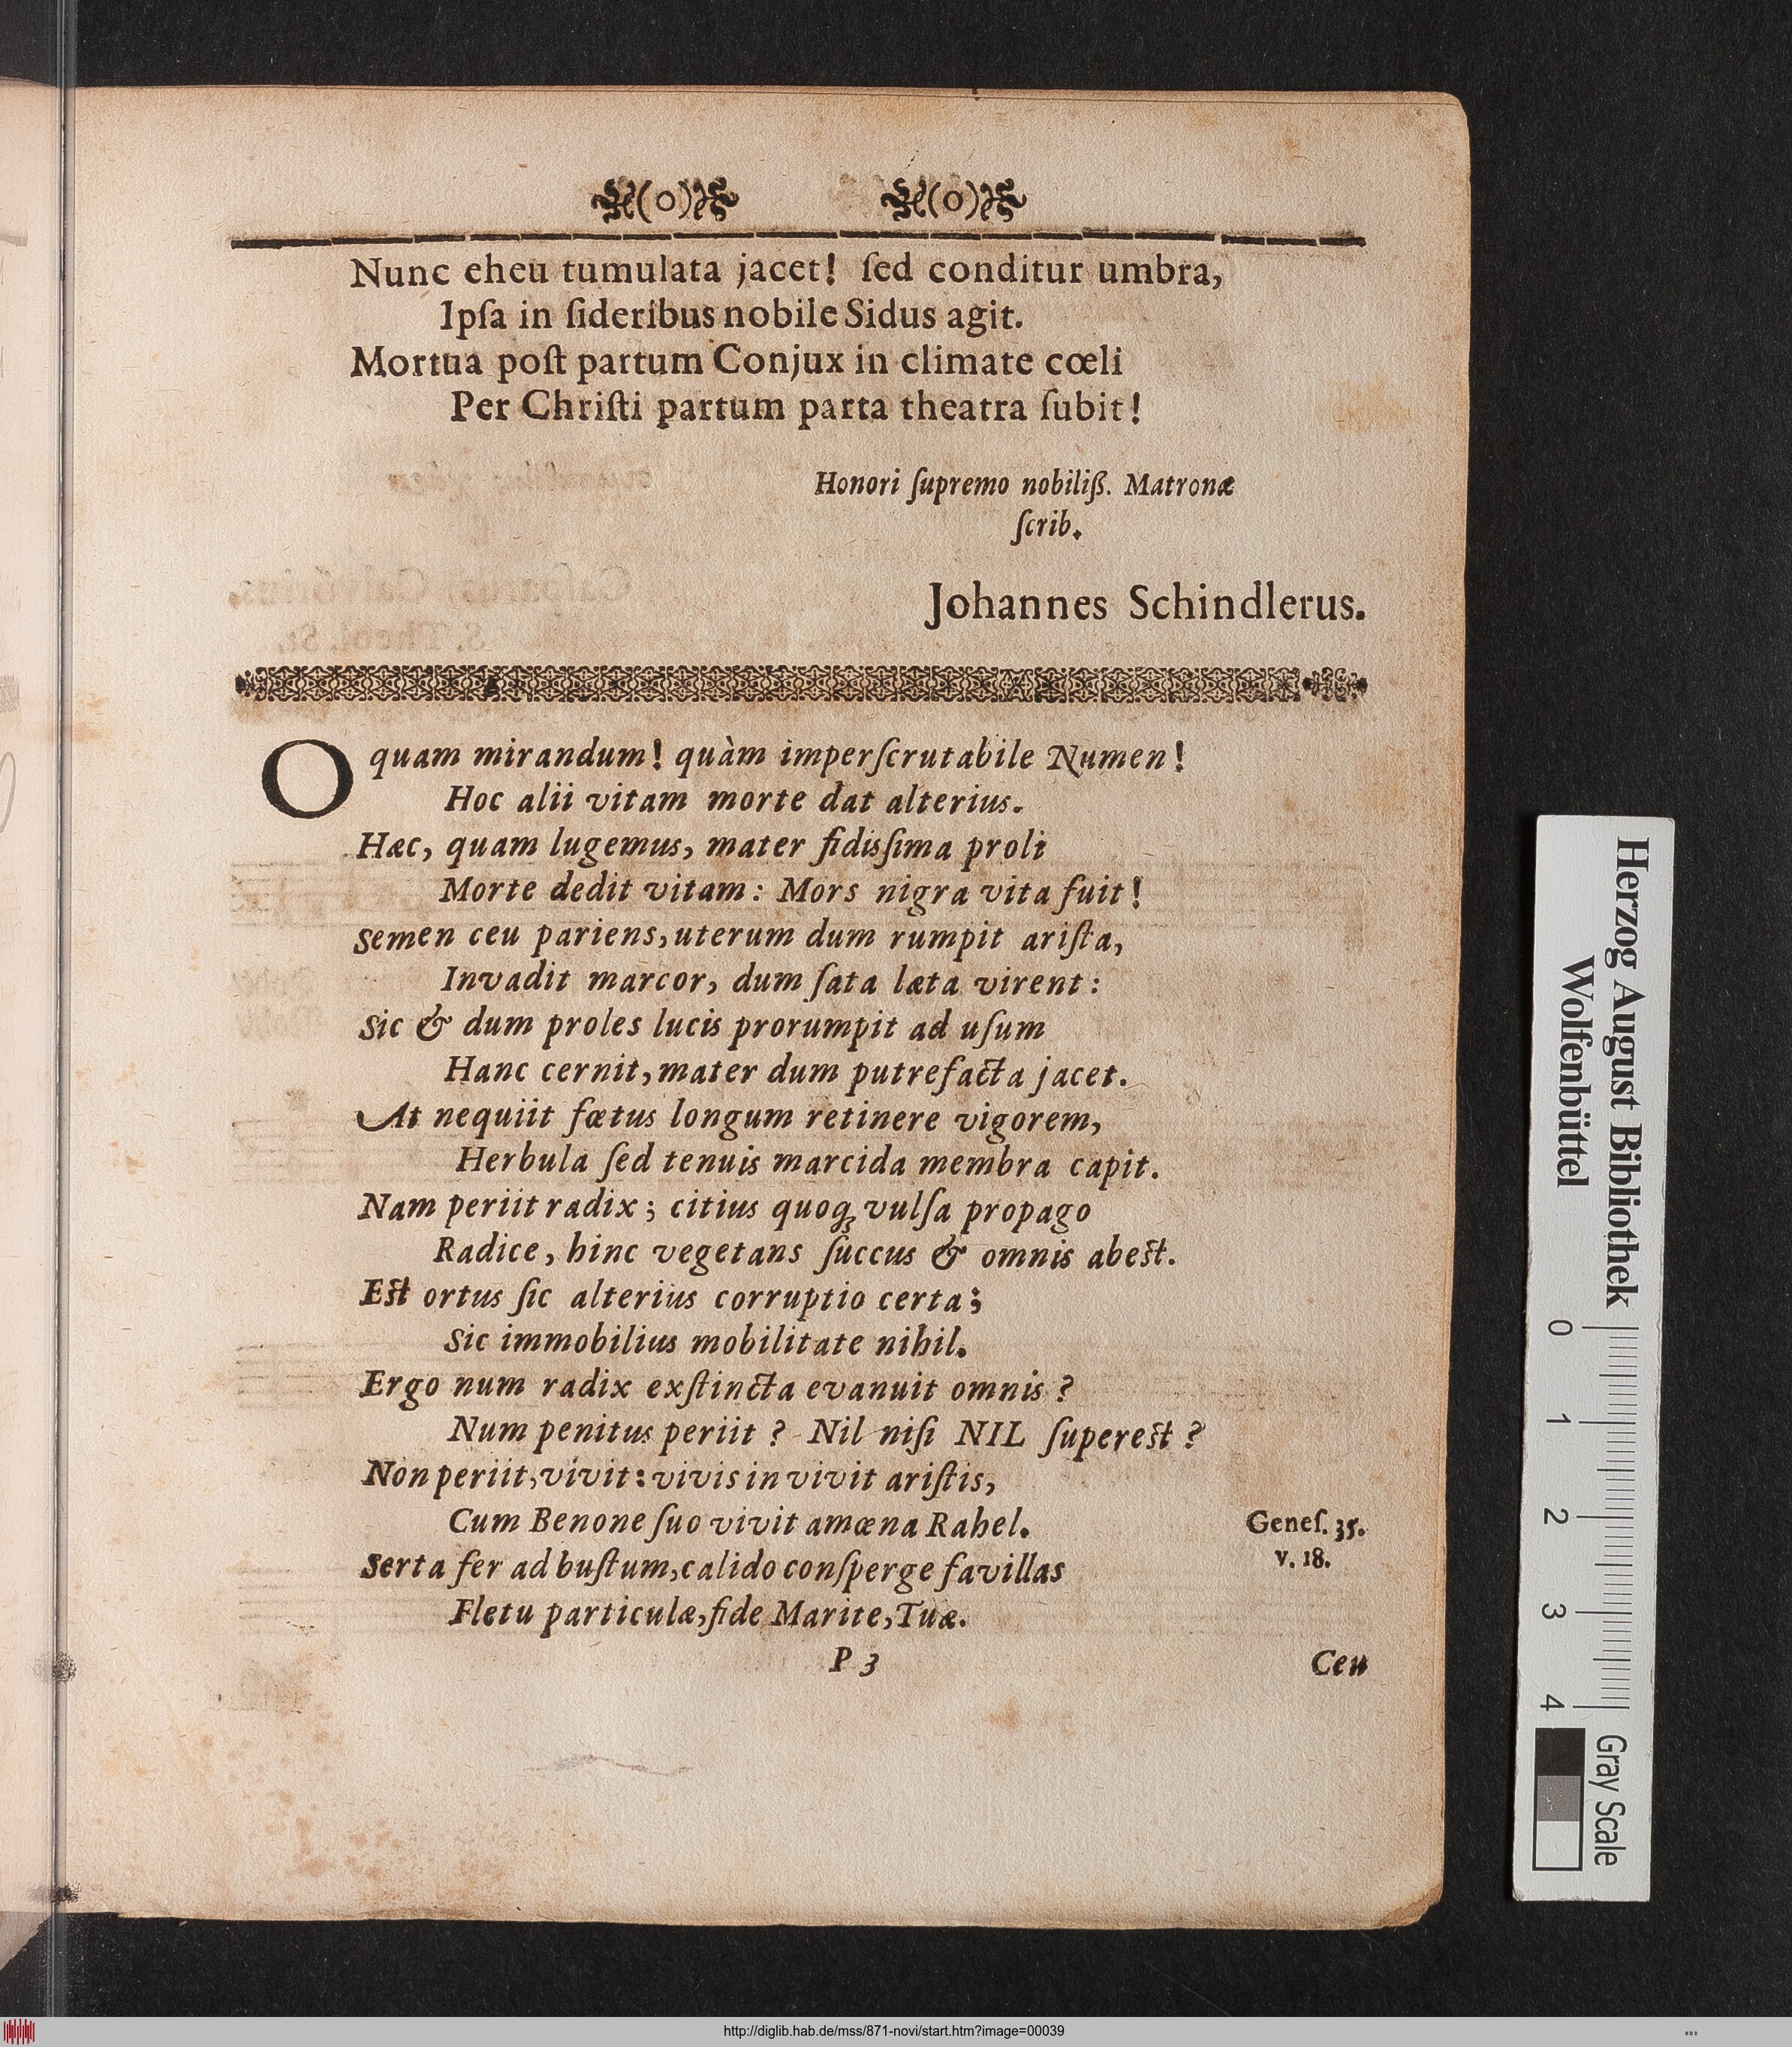 (o) (o)
Nunc eheu tumulata jacet! ſed conditur umbra,
Ipſa in ſideribus nobile Sidus agit.
Mortua poſt partum Conjux in climate cœli
Per Chriſti partum parta theatra ſubit!
Honori ſupremo nobiliß. Matronæ
ſcrib.
Johannes Schindlerus.
O quam mirandum! quàm imperſcrutabile Numen!
Hoc alii vitam morte dat alterius.
Hæc, quam lugemus, mater fidisſima proli
Morte dedit vitam: Mors nigra vita fuit!
Semen ceu pariens, uterum dum rumpit ariſta,
Invadit marcor, dum ſata læta virent:
Sic & dum proles lucis prorumpit ad uſum
Hanc cernit, mater dum putrefacta jacet.
At nequiit fœtus longum retinere vigorem,
Herbula ſed tenuis marcida membra capit.
Nam periit radix; citius quoq; vulſa propago
Radice, hinc vegetans ſuccus & omnis abest.
Est ortus ſic alterius corruptio certa;
Sic immobilius mobilitate nihil.
Ergo num radix exſtincta evanuit omnis?
Num penitus periit? Nil niſi NIL ſuperest?
Non periit, vivit: vivis in vivit ariſtis,
Cum Benone ſuo vivit amœna Rahel.
Geneſ. 35.
v. 18.
Serta fer ad buſtum, calido conſperge favillas
Fletu particulæ, fide Marite, Tuæ.
P 3
Ceu
Herzog August Bibliothek
Wolfenbüttel
0 1 2 3 4
Gray Scale
http://diglib.hab.de/mss/871-novi/start.htm?image=00039